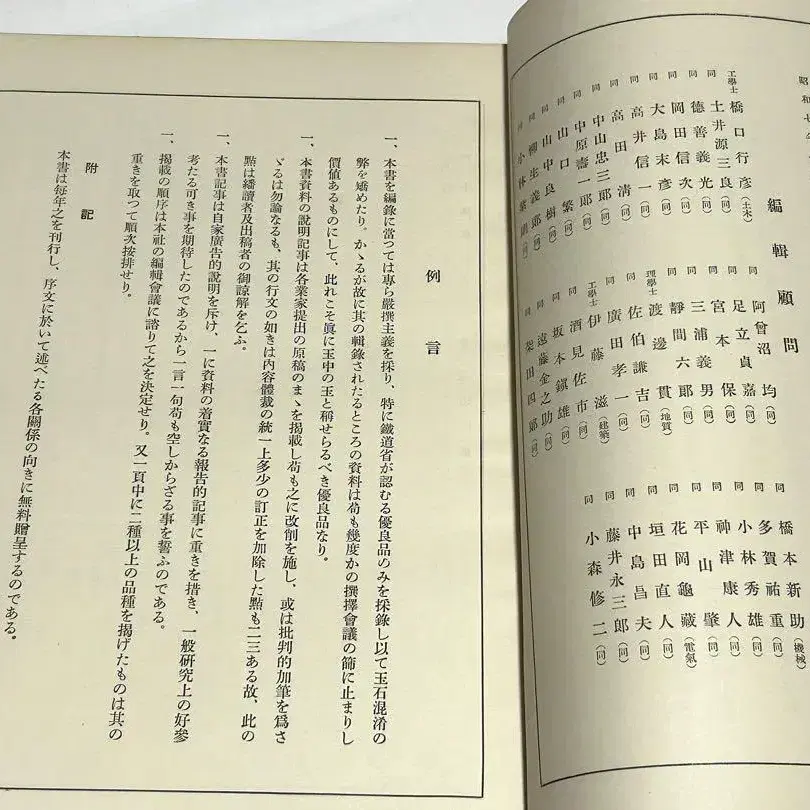 昭和七年
編輯顧問
工學士 橋口行彦(土木)
同 土井源三良(同)
同 德善義光(同)
同 岡田信次(同)
同 大島末彦(同)
同 高井信一(同)
同 高田清(同)
同 中山忠三郎(同)
同 中原壽一郎(同)
同 山口繁(同)
同 山中良樹(同)
同 柳生義郎(同)
同 小林
同 阿曾沼均(同)
同 足立貞嘉(同)
同 宮本保(同)
同 三浦義男(同)
同 靜間六郎(同)
理學士 渡邊貫(地質)
同 佐伯謙吉(同)
同 廣田孝一(同)
工學士 伊藤滋(建築)
同 酒見佐市(同)
同 坂本鎭雄(同)
同 遠藤金之助(同)
同 柴田四郎(同)
同 橋本新助(機械)
同 多賀祐重(同)
同 小林秀雄(同)
同 神津康人(同)
同 平山肇(同)
同 花岡龜藏(電氣)
同 垣田直人(同)
同 中島昌夫(同)
同 藤井永三郎(同)
同 小森修二(同)
例言
一、本書を編錄に當つては專ら嚴撰主義を採り、特に鐵道省が認むる優良品のみを採錄し以て玉石混淆の
弊を矯めたり。かゝるが故に其の輯錄されたるところの資料は苟も幾度かの撰擇會議の篩に止まりし
價値あるものにして、此れこそ眞に玉中の玉と稱せらるべき優良品なり。
一、本書資料の說明記事は各業家提出の原稿のまゝを揭載し苟も之に改削を施し、或は批判的加筆を爲さ
ゞるは勿論なるも、其の行文の如きは內容體裁の統一上多少の訂正を加除した點も二三ある故、此の
點は繙讀者及出稿者の御諒解を乞ふ。
一、本書記事は自家廣告的說明を斥け、一に資料の着實なる報告的記事に重きを措き、一般硏究上の好參
考たる可き事を期待したのであるから一言一句苟も空しからざる事を誓ふのである。
一、揭載の順序は本社の編輯會議に諮りて之を決定せり。又一頁中に二種以上の品種を揭げたものは其の
重きを取つて順次按排せり。
附記
本書は每年之を刊行し、序文に於いて述べたる各關係の向きに無料贈呈するのである。